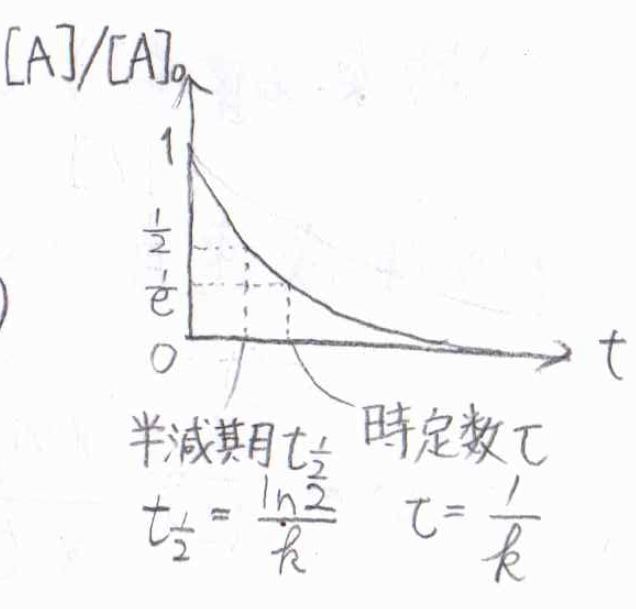 [A]/[A]₀
1
1/2
1/e
0
t
半減期t1/2 時定数τ
t1/2 = ln2/k τ = 1/k